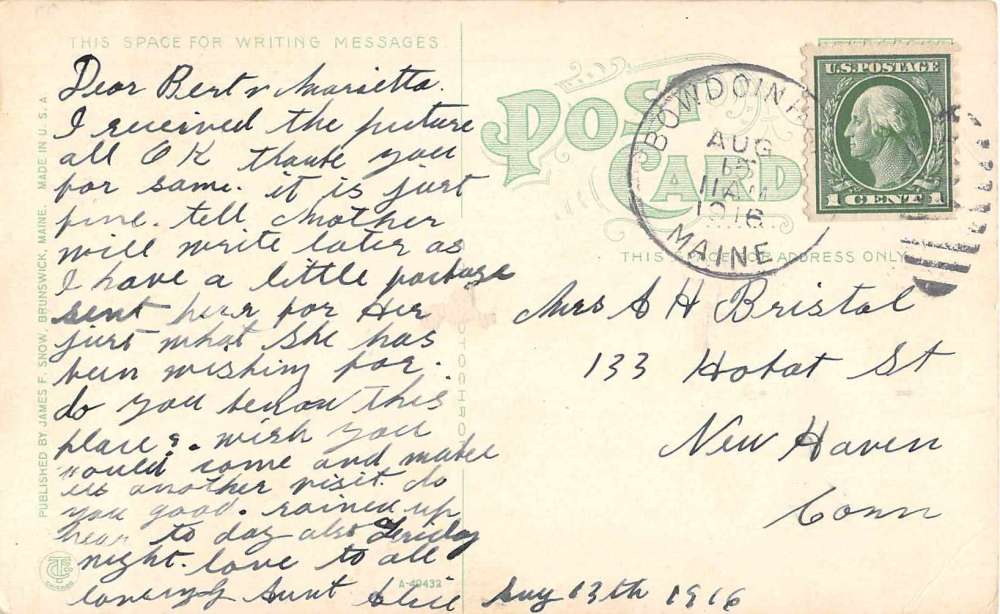 THIS SPACE FOR WRITING MESSAGES
Dear Bert & Marietta.
I received the picture
all OK thank you
for same. it is just
fine. tell Mother
will write later as
I have a little package
sent here for Her
just what she has
been wishing for.
do you know this
place?. wish you
would come and make
us another visit. do
you good. rained up
hear to day also Friday
night. love to all
lovingly Aunt Alice
Aug 13th 1916
PUBLISHED BY JAMES F. SNOW, BRUNSWICK, MAINE. MADE IN U. S. A
A-49432
POST
CARD
BOWDOINHA
AUG
15
11 AM
1916
MAINE
U.S. POSTAGE
1 CENT 1
THIS SPACE FOR ADDRESS ONLY
Mrs A H Bristol
133 Hobat St
New Haven
Conn